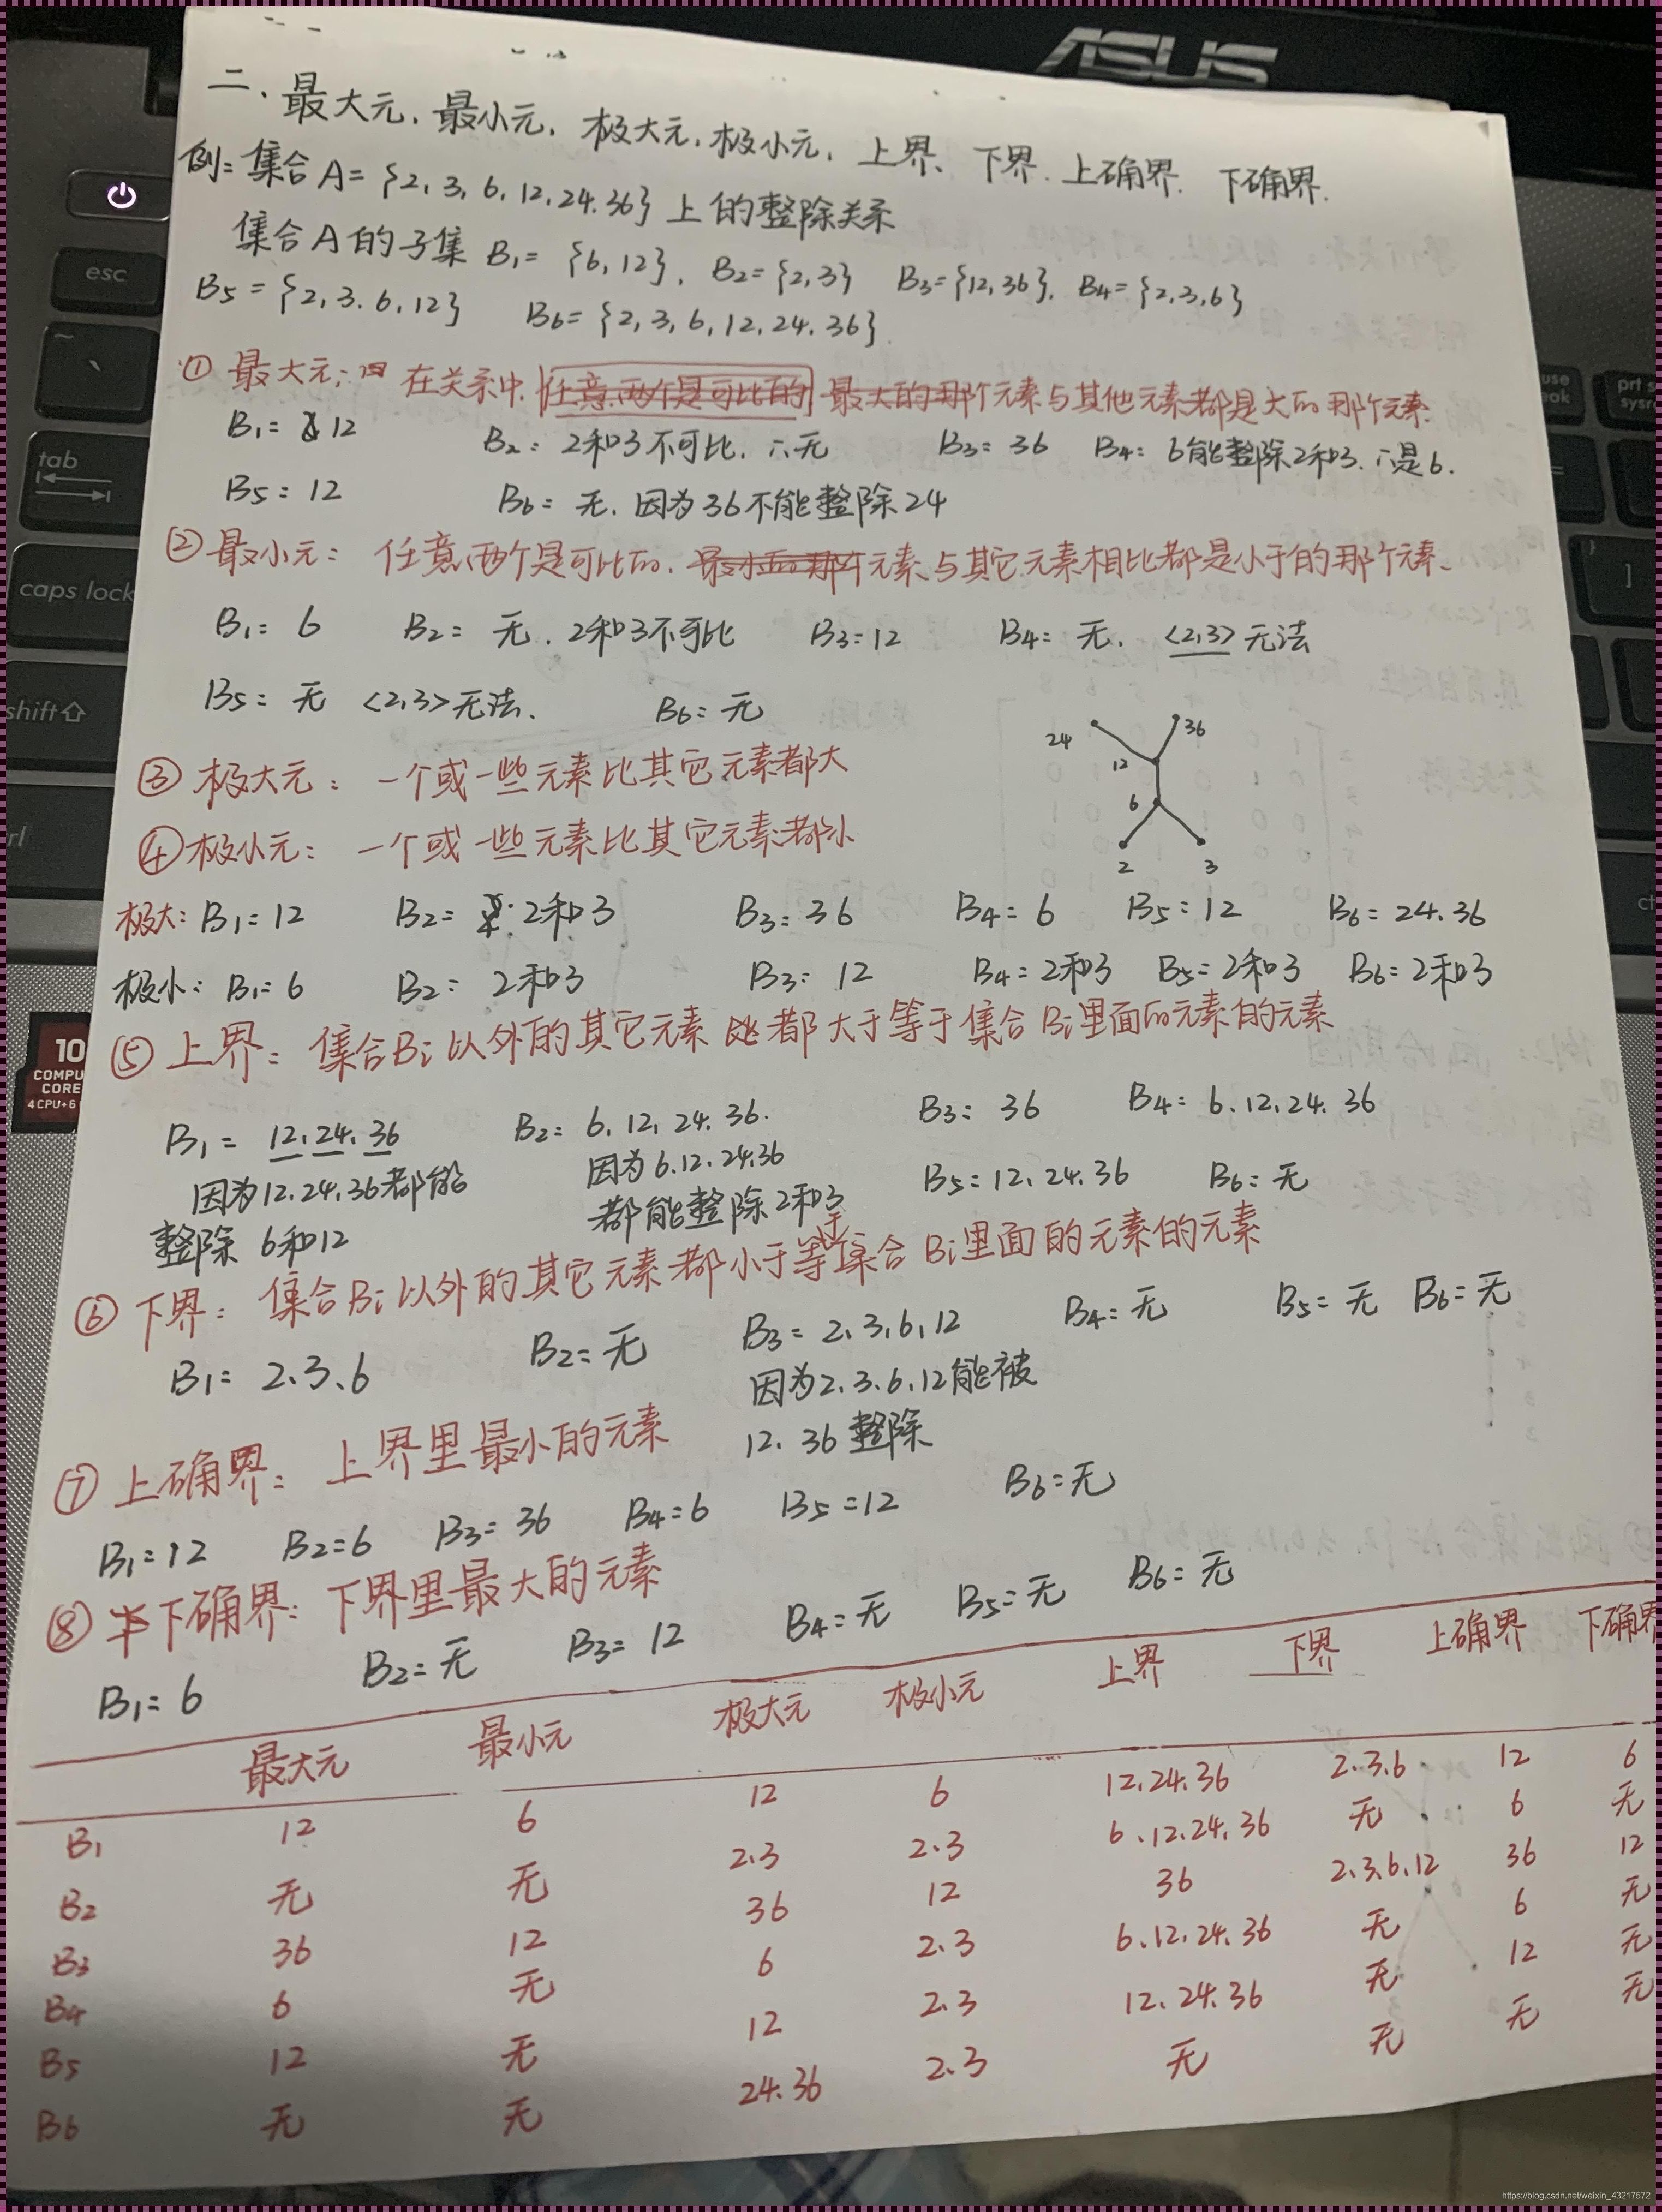 ASUS
二、最大元, 最小元, 极大元, 极小元, 上界、下界. 上确界. 下确界.
例: 集合 A= {2, 3, 6, 12, 24. 36} 上的整除关系
集合 A 的子集 B1= {6, 12}, B2= {2,3} B3= {12,36}, B4= {2,3,6}
B5 = {2, 3. 6, 12} B6= {2, 3, 6, 12, 24. 36}
① 最大元: 在关系中, 任意两个是可比的 最大的那个元素与其他元素都是大的那个元素.
B1= 12 B2: 2和3不可比, ∴无 B3= 36 B4: 6能整除2和3. ∴是6.
B5: 12 B6= 无, 因为36不能整除24
② 最小元: 任意两个是可比的, 最小的那个元素与其它元素相比都是小于的那个元素.
B1= 6 B2= 无. 2和3不可比 B3=12 B4= 无. <2,3>无法
B5= 无 <2,3>无法. B6= 无
③ 极大元: 一个或一些元素比其它元素都大
④ 极小元: 一个或一些元素比其它元素都小
24 36
12
6
2 3
极大: B1=12 B2= 2和3 B3= 36 B4= 6 B5: 12 B6= 24.36
极小: B1=6 B2= 2和3 B3= 12 B4=2和3 B5=2和3 B6=2和3
⑤ 上界: 集合Bi以外的其它元素 都大于等于集合Bi里面的元素的元素
B1= 12.24.36 B2= 6. 12, 24. 36. B3= 36 B4= 6.12.24. 36
因为12.24.36都能 因为6.12.24.36 B5=12.24.36 B6=无
整除 6和12 都能整除2和3
⑥ 下界: 集合Bi以外的其它元素都小于等于集合Bi里面的元素的元素
B1= 2、3、6 B2=无 B3= 2、3,6,12 B4=无 B5= 无 B6=无
因为2、3、6、12能被
12、36 整除
⑦ 上确界: 上界里最小的元素
B1=12 B2=6 B3= 36 B4=6 B5=12 B6=无
⑧ 下确界: 下界里最大的元素
B1=6 B2=无 B3= 12 B4=无 B5=无 B6=无
最大元 最小元 极大元 极小元 上界 下界 上确界 下确界
B1 12 6 12 6 12.24.36 2.3.6 12 6
B2 无 无 2.3 2.3 6.12.24.36 无 6 无
B3 36 12 36 12 36 2.3.6.12 36 12
B4 6 无 6 2.3 6.12.24.36 无 6 无
B5 12 无 12 2.3 12.24.36 无 12 无
B6 无 无 24.36 2.3 无 无 无 无
esc
tab
caps lock
shift
prt s
10
COMPU
CORE
4 CPU+6
https://blog.csdn.net/weixin_43217572